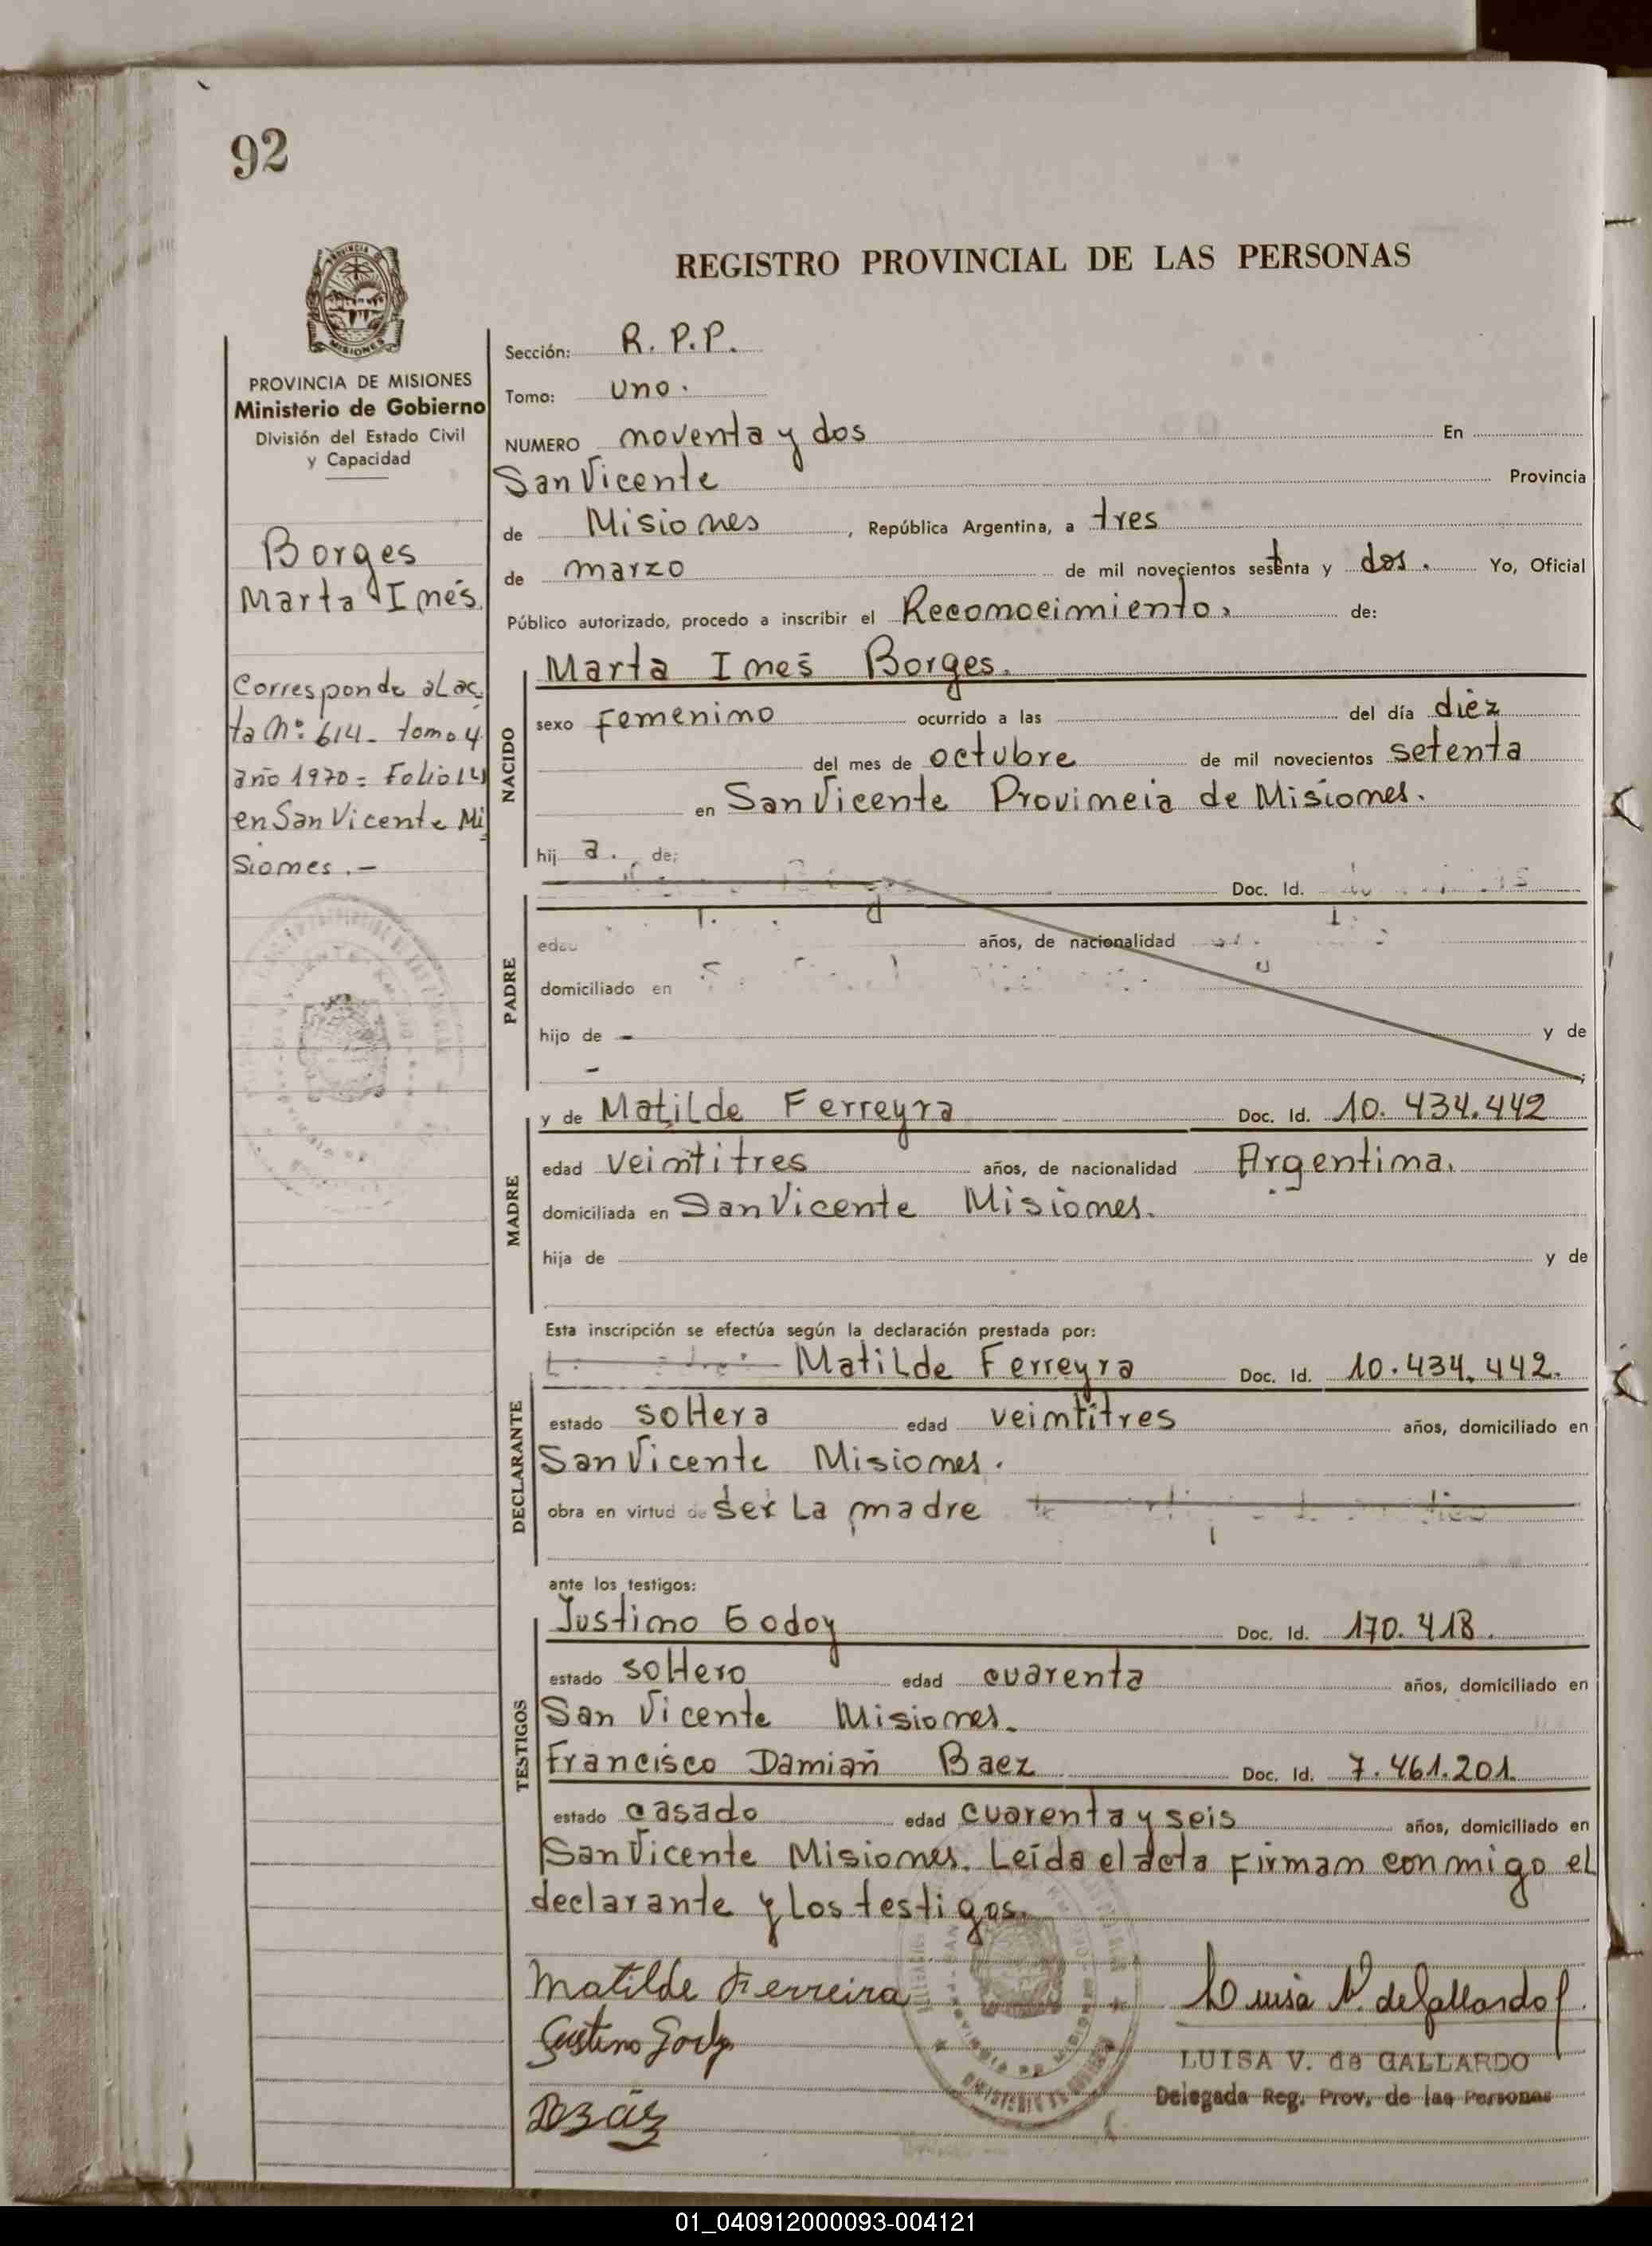 92
REGISTRO PROVINCIAL DE LAS PERSONAS
MISIONES
PROVINCIA DE MISIONES
Ministerio de Gobierno
División del Estado Civil
y Capacidad
Borges
Marta Inés
Corresponde al ac
ta Nº: 614 - tomo 4
año 1970 = Folio 14
en San Vicente Mi
siones . -
Sección: R. P.P.
Tomo: uno.
NUMERO noventa y dos En
San Vicente Provincia
de Misiones, República Argentina, a tres
de marzo de mil novecientos setenta y dos. Yo, Oficial
Público autorizado, procedo a inscribir el Reconocimiento, de:
NACIDO
Marta Inés Borges.
sexo Femenino ocurrido a las del día diez
del mes de octubre de mil novecientos setenta
en San Vicente Provincia de Misiones.
hij a. de:
PADRE
Doc. Id.
edad años, de nacionalidad
domiciliado en
hijo de - y de
-
MADRE
y de Matilde Ferreyra Doc. Id. 10.434.442
edad veintitres años, de nacionalidad Argentina.
domiciliada en San Vicente Misiones.
hija de y de
Esta inscripción se efectúa según la declaración prestada por:
DECLARANTE
Matilde Ferreyra Doc. Id. 10.434.442.
estado soltera edad veintitres años, domiciliado en
San Vicente Misiones.
obra en virtud de ser La madre
ante los testigos:
TESTIGOS
Justino Godoy Doc. Id. 170.418.
estado soltero edad cuarenta años, domiciliado en
San Vicente Misiones.
Francisco Damián Baez Doc. Id. 7.461.201.
estado casado edad cuarenta y seis años, domiciliado en
San Vicente Misiones. Leída el acta Firman conmigo el
declarante y Los testigos.
Matilde Ferreira
Luisa V. de Gallardo
LUISA V. de GALLARDO
Delegada Reg. Prov. de las Personas
01_040912000093-004121